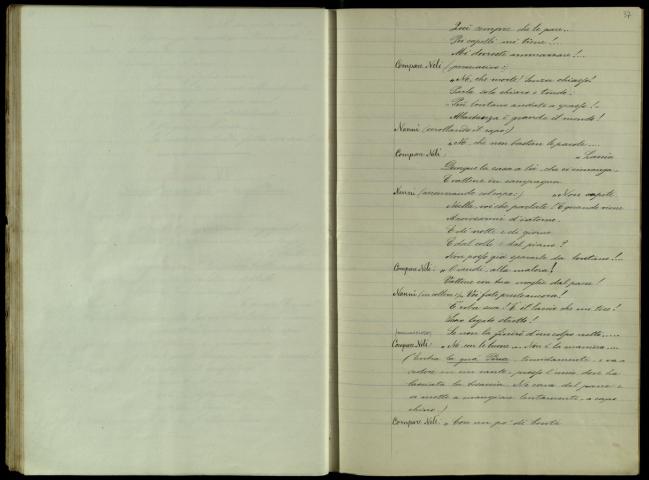 37
Qui sempre da le pare...
Pei capelli mi tiene!...
Mi dovreste ammazzare!...
Compare Neli (persuasivo:)
„No, che morte! Senza chiasso!
Parla solo chiaro e tondo:
„Più lontano andate a
Abbastanza è grande il mondo!
Nanni (scrollando il capo:)
„No, che non bastan le parole....
Compare Neli: „Lascia
Dunque la casa a lei, che ci rimanga.
E vattene in campagna.
Nanni (accennando col capo:) „Non capite
Nulla, voi che parlate! E quando viene
A cercarmi d'intorno
E di notte e di giorno
E dal colle e dal piano?
Non posso già spararle da lontano!...
Compare Neli: „O andà, alla malora!
Vattene con tua moglie dal paese!
Nanni (in collera): „Voi fate presto ancora!
E roba sua! E il laccio che mi tese!
Sono legato stretto!
Se non la finirò d'un colpo netto.....
Compare Neli: „No, con le buone... Non è la maniera....
(Entra la gnà Pina, timidamente, e va a
sedere in un canto, presso l'uscio, dove ha
lasciata la bisaccia. Ne cava del pane e
si mette a mangiare lentamente, a capo
chino.)
Compare Neli: „Con un po' di bontà